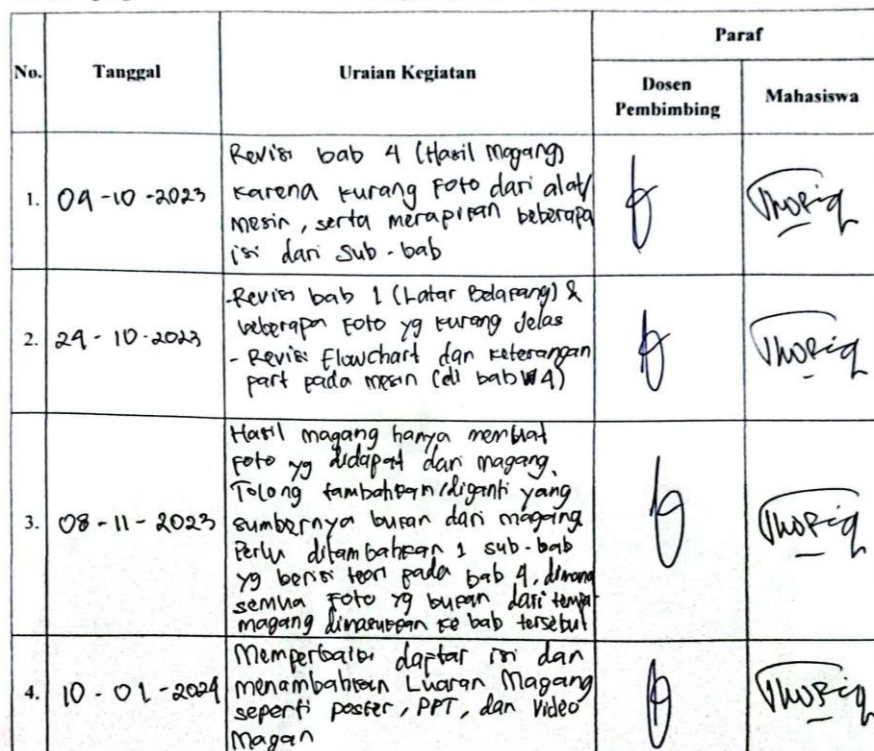 Paraf
No.
Tanggal
Uraian Kegiatan
Dosen
Pembimbing
Mahasiswa
1.
04-10-2023
Revisi bab 4 (Hasil Magang)
karena kurang Foto dari alat/
mesin, serta merapikan beberapa
isi dari sub-bab
Thoriq
2.
24-10-2023
-Revisi bab 1 (Latar Belakang) &
beberapa Foto yg kurang Jelas
- Revisi Flowchart dan keterangan
part pada mesin (di bab 4)
Thoriq
3.
08-11-2023
Hasil magang hanya membuat
foto yg didapat dari magang.
Tolong tambahkan/diganti yang
sumbernya bukan dari magang
Perlu ditambahkan 1 sub-bab
yg berisi teori pada bab 4, dimana
semua Foto yg bukan dari tempat
magang dimasukkan ke bab tersebut
Thoriq
4.
10-01-2024
Memperbaiki daftar isi dan
menambahkan Luaran Magang
seperti poster, PPT, dan Video
Magan
Thoriq